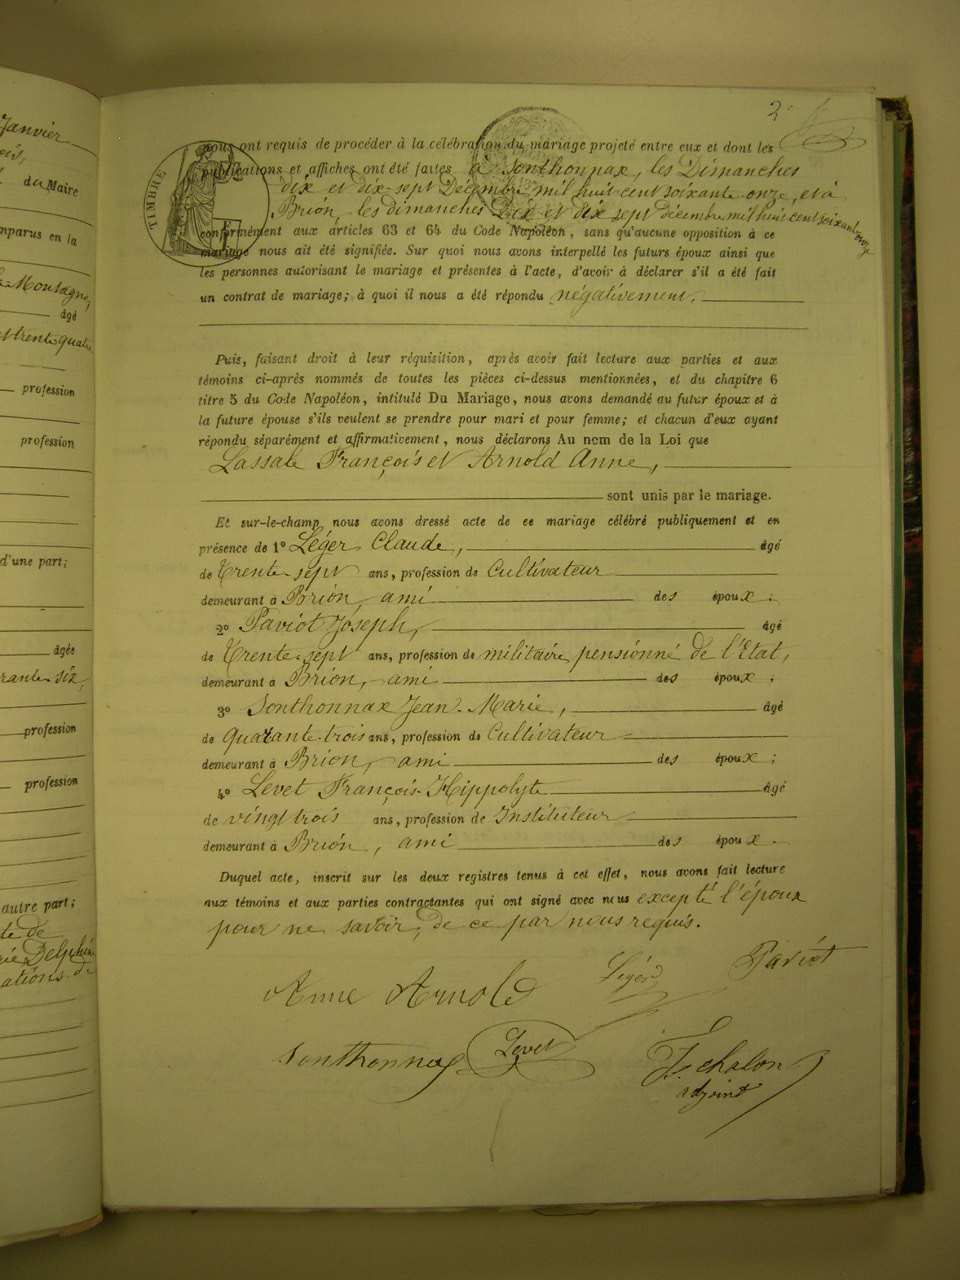 Janvier
du Maire
mparus en la
Montagne,
âgé
et trente quatre
profession
profession
d'une part;
âgés
rante six,
profession
profession
autre part;
te de
rie Delphine
ations de
2
TIMBRE
nous ont requis de procéder à la célébration du mariage projeté entre eux et dont les
publications et affiches ont été faites à Sonthonnax, les Dimanches
dix et dix-sept Décembre mil huit cent soixante onze, et à
Brion, les dimanches Dix et dix sept décembre mil huit cent soixante onze
conformément aux articles 63 et 64 du Code Napoléon, sans qu'aucune opposition à ce
mariage nous ait été signifiée. Sur quoi nous avons interpellé les futurs époux ainsi que
les personnes autorisant le mariage et présentes à l'acte, d'avoir à déclarer s'il a été fait
un contrat de mariage; à quoi il nous a été répondu négativement.
Puis, faisant droit à leur réquisition, après avoir fait lecture aux parties et aux
témoins ci-après nommés de toutes les pièces ci-dessus mentionnées, et du chapitre 6
titre 5 du Code Napoléon, intitulé Du Mariage, nous avons demandé au futur époux et à
la future épouse s'ils veulent se prendre pour mari et pour femme; et chacun d'eux ayant
répondu séparément et affirmativement, nous déclarons Au nom de la Loi que
Lassale François et Arnold Anne,
sont unis par le mariage.
Et sur-le-champ, nous avons dressé acte de ce mariage célébré publiquement et en
présence de 1º Léger Claude, âgé
de Trente-sept ans, profession de Cultivateur
demeurant à Brion, ami des époux;
2º Paviot Joseph, âgé
de Trente-sept ans, profession de militaire pensionné de l'Etat,
demeurant à Brion, ami des époux;
3º Sonthonnax Jean-Marie, âgé
de quarante-trois ans, profession de Cultivateur
demeurant à Brion, ami des époux;
4º Levet François-Hippolyte âgé
de vingt trois ans, profession de Instituteur
demeurant à Brion, ami des époux.
Duquel acte, inscrit sur les deux registres tenus à cet effet, nous avons fait lecture
aux témoins et aux parties contractantes qui ont signé avec nous excepté l'époux
pour ne savoir, de ce par nous requis.
Anne Arnold Léger Paviot
Sonthonnax Levet Fs. Chalon
adjoint